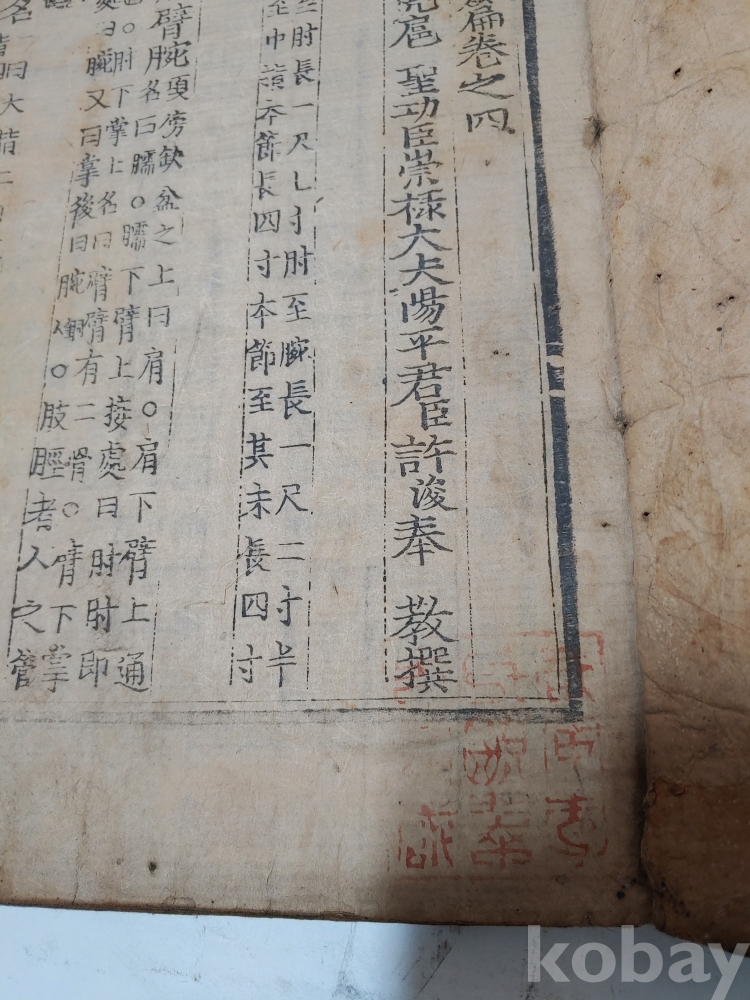 篇卷之四
扈 聖功臣崇祿大夫陽平君臣許浚奉 教撰
肘長一尺七寸肘至腕長一尺二寸半
至中指本節長四寸本節至其末長四寸
臂腕項傍缺盆之上曰肩○肩下臂上通
名曰臑○臑下臂上接處曰肘肘即
○肘下掌上名曰臂臂有二骨○臂下掌
處曰腕又曰掌後曰腕銅人○肢脛者人之管
名 指曰大指二
kobay